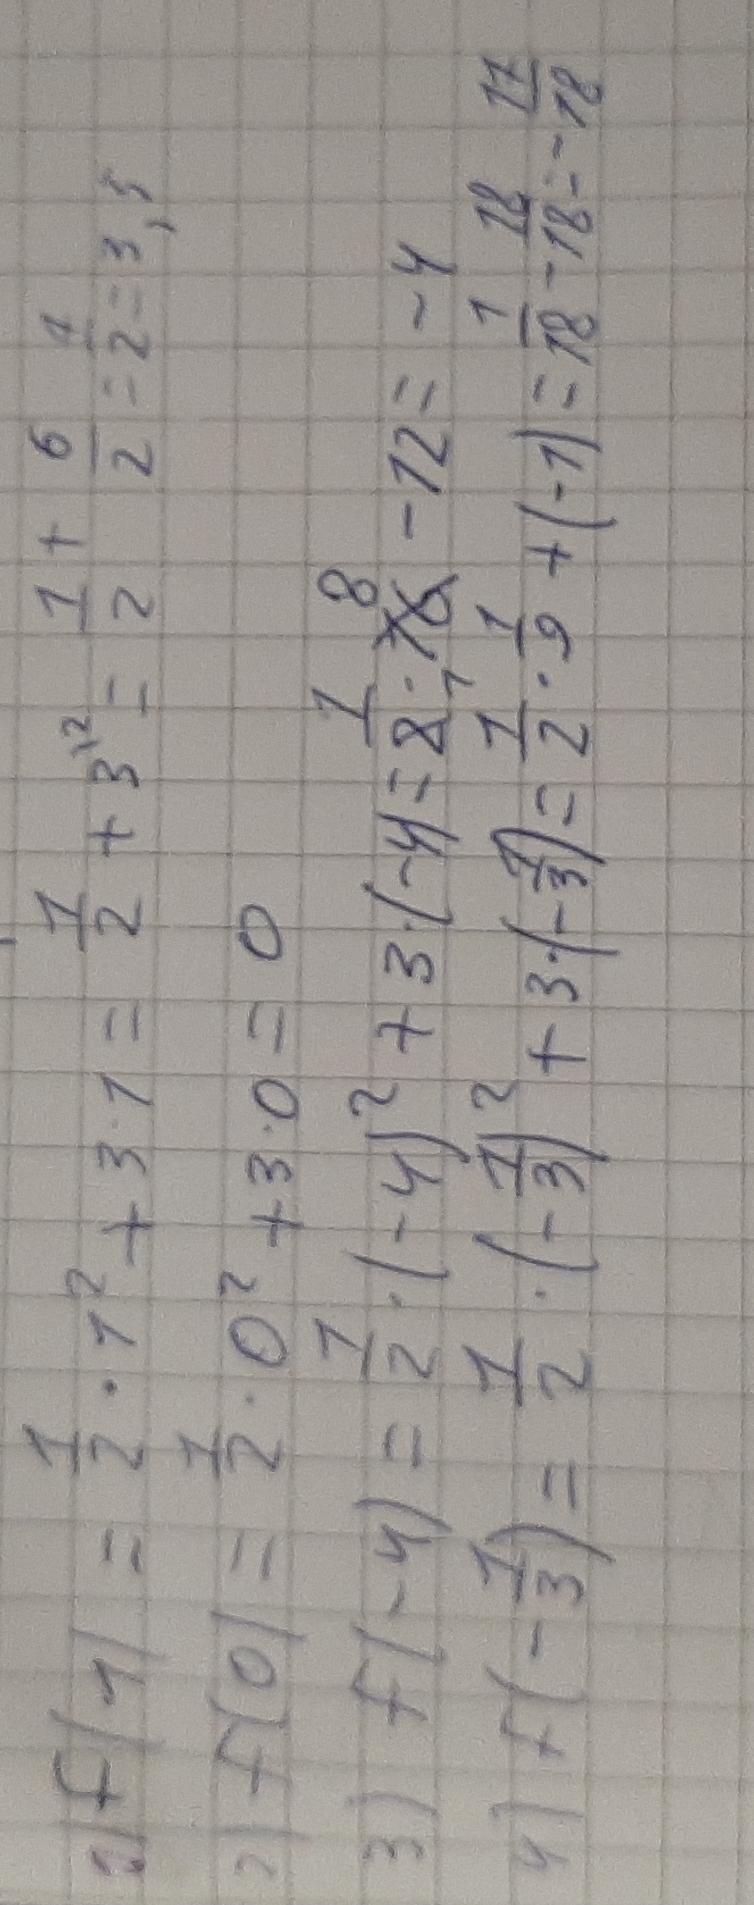 1) f(1) = 1/2 · 1² + 3·1 = 1/2 + 3^{\2} = 1/2 + 6/2 = 7/2 = 3,5
2) f(0) = 1/2 · 0² + 3·0 = 0
3) f(-4) = 1/2 · (-4)² + 3·(-4) = 1/2 · 16 - 12 = -4
4) f(-1/3) = 1/2 · (-1/3)² + 3·(-1/3) = 1/2 · 1/9 + (-1) = 1/18 - 18/18 = -17/18